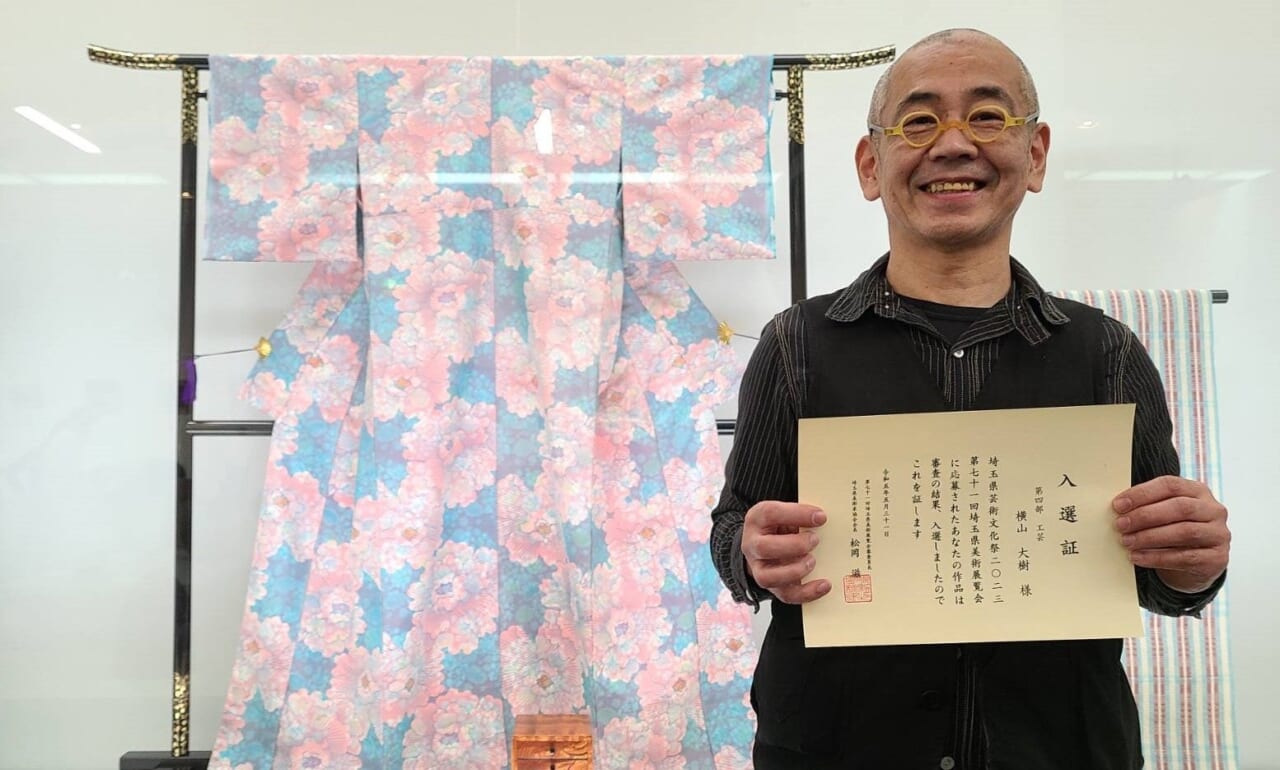 入選証
第四部 工芸
横山 大樹 様
埼玉県芸術文化祭二〇二三
第七十一回埼玉県美術展覧会
に応募されたあなたの作品は
審査の結果、入選しましたので
これを証します
令和五年五月三十一日
第七十一回埼玉県美術展覧会審査員長
埼玉県美術家協会会長 松岡 滋